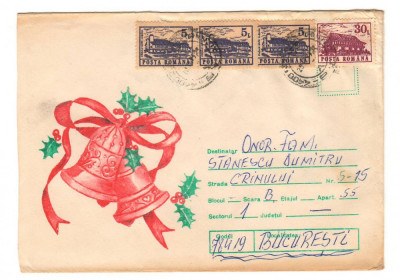 5 L 5 L 5 L 30 L
POSTA ROMANA POSTA ROMANA POSTA ROMANA POSTA ROMANA
Destinatar Onor. Fam.
STANESCU DUMITRU
Strada CRINULUI Nr. 5-15
Blocul — Scara B Etajul Apart. 55
Sectorul 1 Județul —
BUCUREȘTI